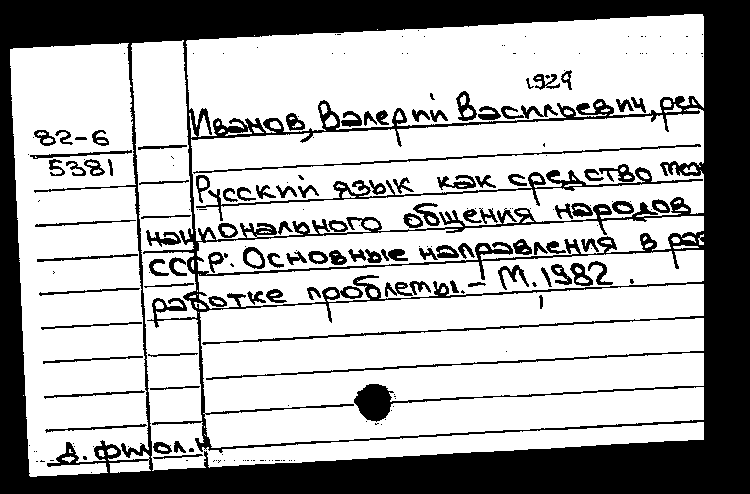 1929
Иванов, Валерий Васильевич, ред
82-6
5381
Русский язык как средство меж
национального общения народов
СССР: Основные направления в раз
работке проблемы. - М. 1982.
д. филол. н.